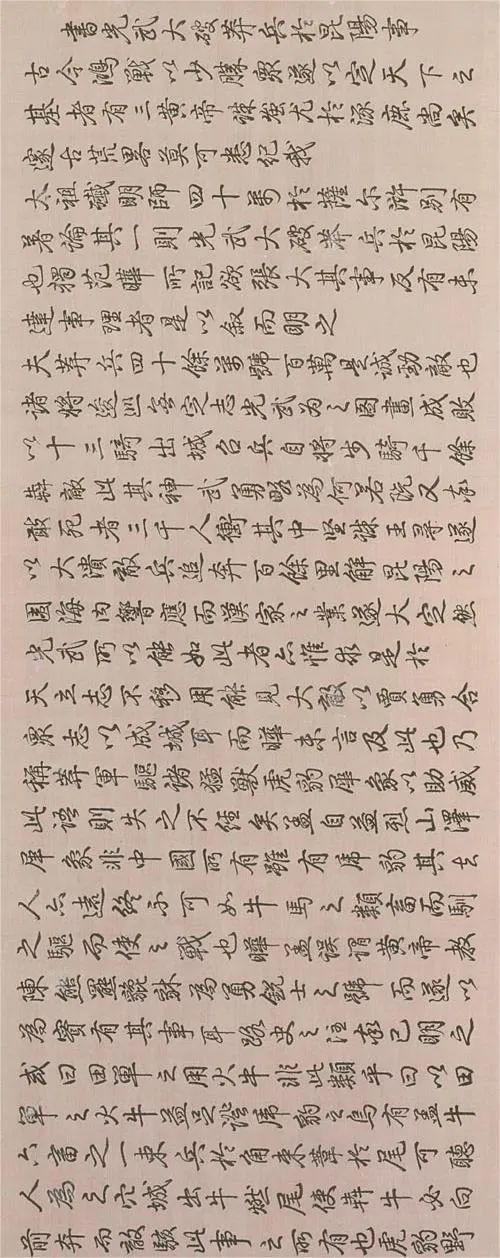 書光武大破莽兵於昆陽事
古今鴻戰以少勝衆遂以定天下之
基者有三黄帝誅蚩尤於涿鹿尚矣
邃古荒畧莫可悉紀我
太祖殲明師四十萬於薩尔滸别有
著論其一則光武大破莽兵於昆陽
也獨范曄所記欲張大其事反有未
達事理者是以叙而明之
夫莽兵四十餘萬號百萬是誠勍敵也
諸將逡巡無定志光武為之圖畫成敗
以十三騎出城召兵自將步騎千餘
犇敵此其神武勇畧為何若既又率
敢死者三千人衝其中堅誅王尋遂
以大潰敵兵追奔百餘里解昆陽之
圍海内響應而漢家之業遂大定然
光武所以能如此者亦惟是於
天立志不移用能見大敵以賈勇合
衆志以成城耳而曄未言及此也乃
稱莽軍驅諸猛獸虎豹犀象以助威
此語則失之不經矣蓋自益烈山澤
犀象非中國所有雖有虎豹其去
人亦遠終不可如牛馬之類畜而馴
之驅而使之戰也曄蓋誤謂黄帝教
陳熊羆貔貅為勇銳士之號而遂以
為實有其事耳路史之注亦已明之
或曰田單之用火牛非此類乎曰以田
單之火牛益足證虎豹之烏有蓋牛
六畜之一束兵於角束葦於尾可聽
人為之穴城出牛燃尾使犇牛必向
前奔而敵駭此事之所有也虎豹野